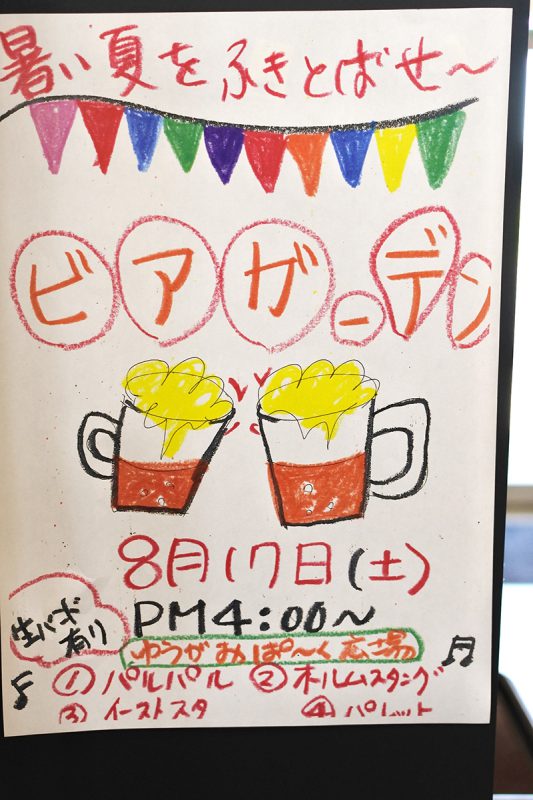 暑い夏をふきとばせ〜
ビアガーデン
8月17日(土)
PM4:00〜
生バンド有り
ゆうがおぱ〜く広場
① パルパル ② ホルムスタング
③ イーストスタ ④ パレット